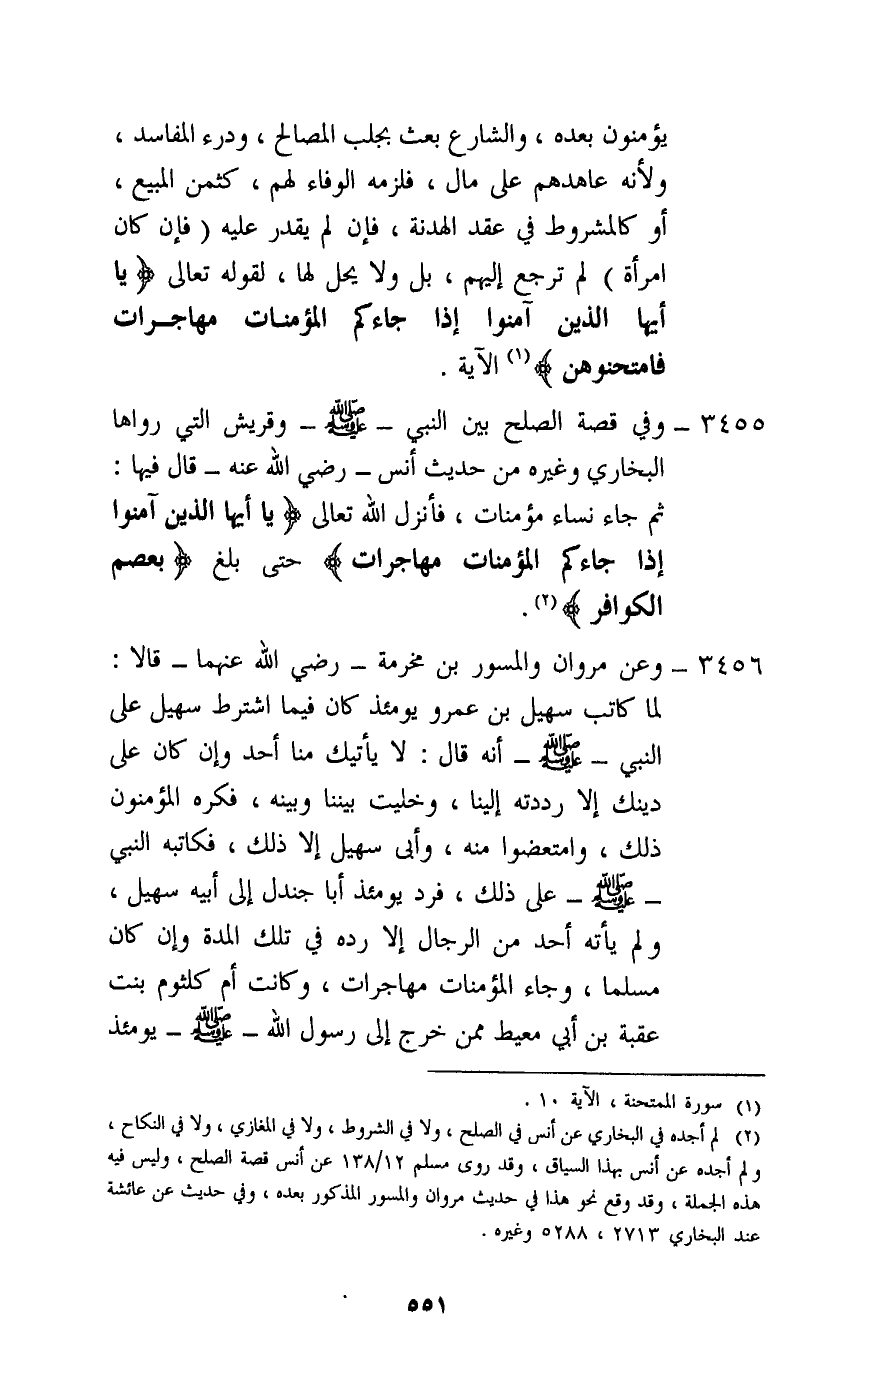 يؤمنون بعده ، والشارع بعث بجلب المصالح ، ودرء المفاسد ،
ولأنه عاهدهم على مال ، فلزمه الوفاء لهم ، كثمن المبيع ،
أو كالمشروط في عقد الهدنة ، فإن لم يقدر عليه ( فإن كان
امرأة ) لم ترجع إليهم ، بل ولا يحل لها ، لقوله تعالى ﴿ يا
أيها الذين آمنوا إذا جاءكم المؤمنات مهاجرات
فامتحنوهن ﴾(١) الآية .
٣٤٥٥ ـ وفي قصة الصلح بين النبي ـ ﷺ ـ وقريش التي رواها
البخاري وغيره من حديث أنس ـ رضي الله عنه ـ قال فيها :
ثم جاء نساء مؤمنات ، فأنزل الله تعالى ﴿ يا أيها الذين آمنوا
إذا جاءكم المؤمنات مهاجرات ﴾ حتى بلغ ﴿ بعصم
الكوافر ﴾(٢) .
٣٤٥٦ ـ وعن مروان والمسور بن مخرمة ـ رضي الله عنهما ـ قالا :
لما كاتب سهيل بن عمرو يومئذ كان فيما اشترط سهيل على
النبي ـ ﷺ ـ أنه قال : لا يأتيك منا أحد وإن كان على
دينك إلا رددته إلينا ، وخليت بيننا وبينه ، فكره المؤمنون
ذلك ، وامتعضوا منه ، وأبى سهيل إلا ذلك ، فكاتبه النبي
ـ ﷺ ـ على ذلك ، فرد يومئذ أبا جندل إلى أبيه سهيل ،
ولم يأته أحد من الرجال إلا رده في تلك المدة وإن كان
مسلما ، وجاء المؤمنات مهاجرات ، وكانت أم كلثوم بنت
عقبة بن أبي معيط ممن خرج إلى رسول الله ـ ﷺ ـ يومئذ
(١) سورة الممتحنة ، الآية ١٠ .
(٢) لم أجده في البخاري عن أنس في الصلح ، ولا في الشروط ، ولا في المغازي ، ولا في النكاح ،
ولم أجده عن أنس بهذا السياق ، وقد روى مسلم ١٣٨/١٢ عن أنس قصة الصلح ، وليس فيه
هذه الجملة ، وقد وقع نحو هذا في حديث مروان والمسور المذكور بعده ، وفي حديث عن عائشة
عند البخاري ٢٧١٣ ، ٥٢٨٨ وغيره .
٥٥١